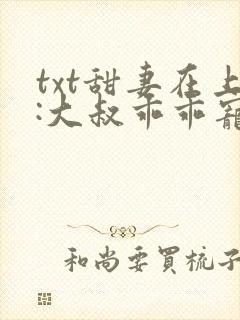 txt甜妻在上
:大叔乖乖寵
和尚要買梳子